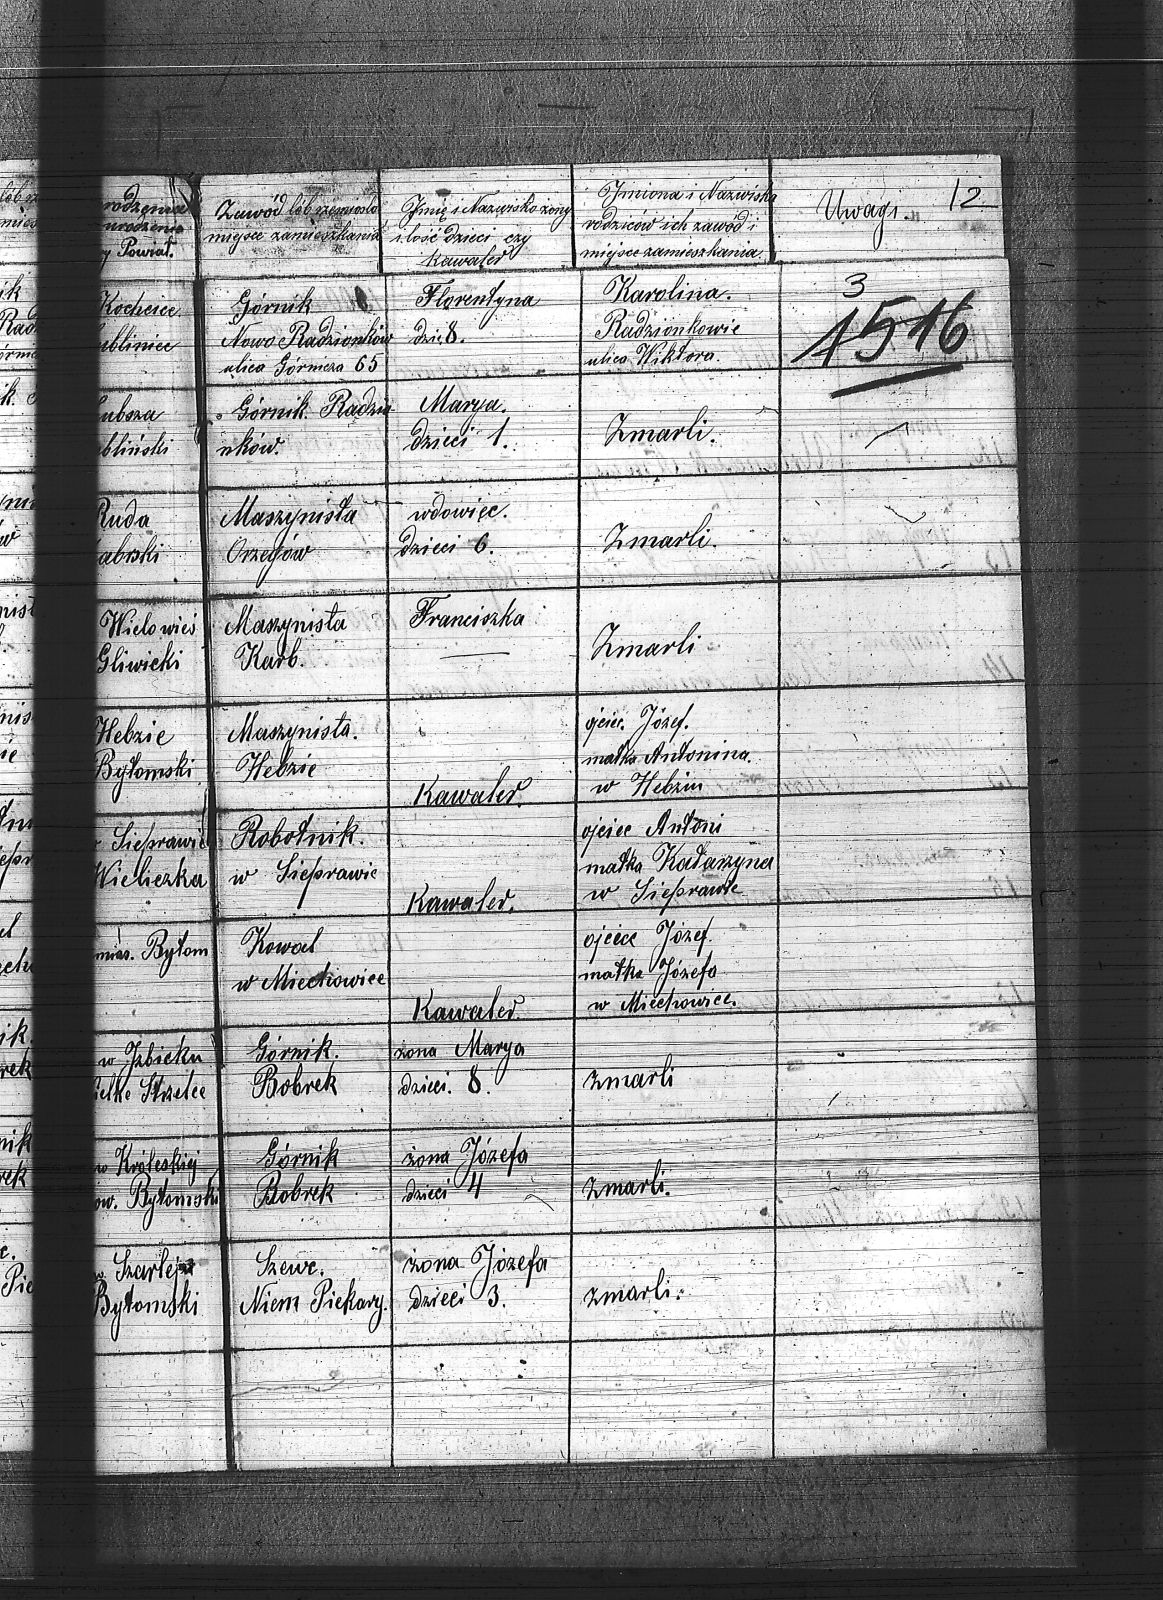 Zawód lób rzemiosło
miejsce zamieszkania
Imię i Nazwisko żony
i ilość dzieci czy
kawaler
Imiona i Nazwiska
rodziców ich zawód i
miejsce zamieszkania.
Uwagi.
12
urodzenia
Powiat.
Kochcice
Górnik
Nowo Radzionków
ulica Górnicza 65
Florentyna
dzie 8.
Karolina.
Radzionkowie
ulica Wiktora.
3
1516
Lubsza
Górnik. Radzio
nków.
Marya.
dzieci 1.
Zmarli.
Ruda
Maszynista
Orzegów
wdowiec.
dzieci 6.
Zmarli.
Wielowieś
Gliwicki
Maszynista
Karb.
Franciszka
Zmarli
Hebzie
Bytomski
Maszynista.
Hebzie
Kawaler.
ojciec. Józef.
matka Antonina.
w Hebziu
Sieprawie
Wieliczka
Robotnik.
w Sieprawie
Kawaler.
ojciec Antoni
matka Katarzyna
w Sieprawie
Bytom
Kowal
w Miechowice
Kawaler.
ojciec Józef.
matka Józefa
w Miechowice.
w Izbicku
Strzelce
Górnik.
Bobrek
żona Marya
dzieci. 8.
zmarli
Króleskiej
Bytomski
Górnik
Bobrek
żona Józefa
dzieci 4
zmarli.
Szarlej
Bytomski
Szewc.
Niem Piekary.
żona Józefa
dzieci 3.
zmarli.